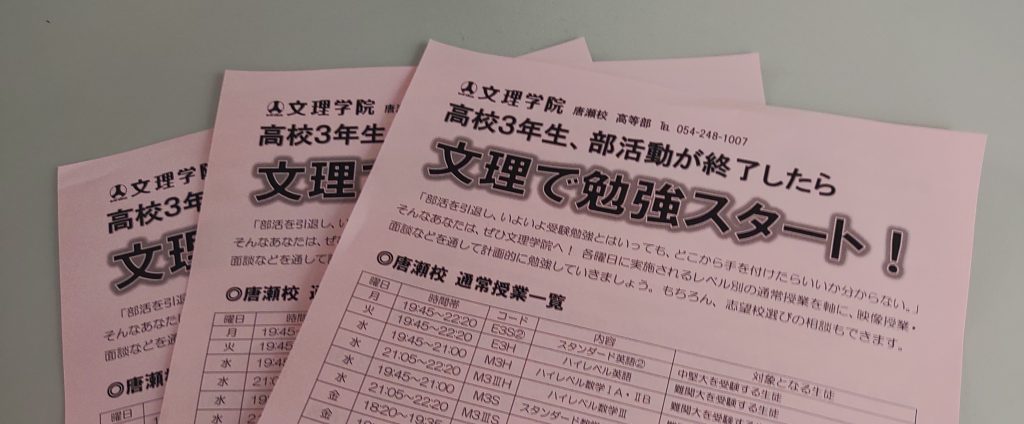 文理学院 唐瀬校 高等部 ℡ 054-248-1007
高校3年生、部活動が終了したら
文理で勉強スタート！
「部活を引退し、いよいよ受験勉強とはいっても、どこから手を付けたらいいか分からない。」
そんなあなたは、ぜひ文理学院へ！ 各曜日に実施されるレベル別の通常授業を軸に、映像授業・
面談などを通して計画的に勉強していきましょう。もちろん、志望校選びの相談もできます。
◎唐瀬校 通常授業一覧
曜日 時間帯 コード 内容 対象となる生徒
月 19:45~22:20 E3S② スタンダード英語② 中堅大を受験する生徒
火 19:45~22:20 E3H ハイレベル英語 難関大を受験する生徒
水 19:45~21:00 M3H ハイレベル数学ⅠA・ⅡB 難関大を受験する生徒
水 21:05~22:20 M3ⅢH ハイレベル数学Ⅲ
水 19:45~21:00 M3S スタンダード数学
金 21:05~22:20 M3ⅢS
金 18:20~19:35
文理学院 唐
高校3年生、
文理
「部活を引退し、い
そんなあなたは、ぜ
面談などを通して
◎唐瀬校 通
曜日 時間
月 19:45
火 19:45
水 19:4
水 21:0
水
金
文理学院
高校3年
文理
「部活を引退
そんなあなた
面談などを通
◎唐瀬校
曜日
月